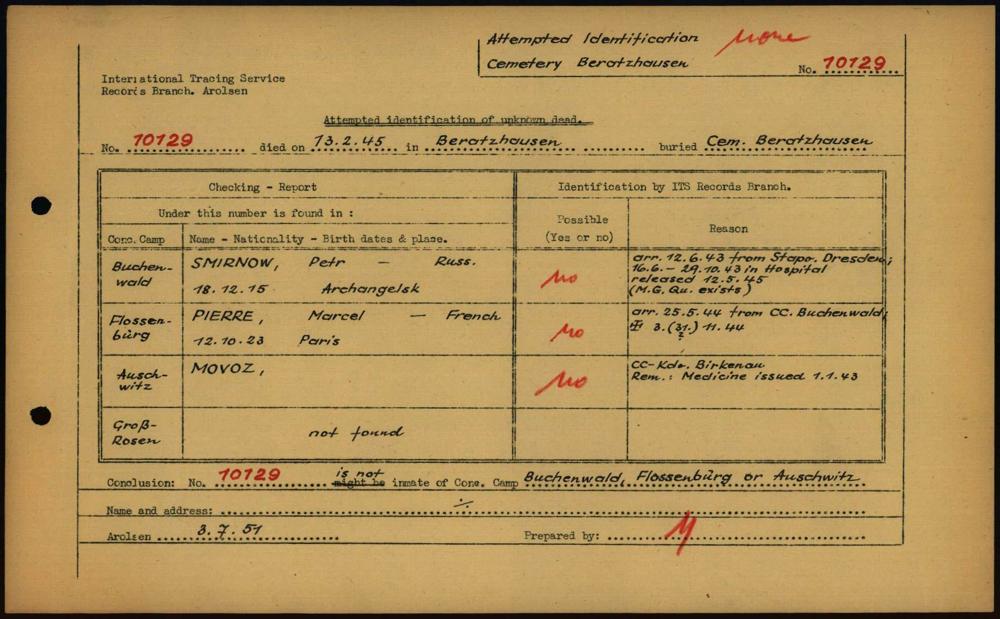 Attempted Identification none
Cemetery Beratzhausen
No. 10129
International Tracing Service
Records Branch. Arolsen
Attempted identification of unknown dead.
No. 10129 died on 13.2.45 in Beratzhausen buried Cem. Beratzhausen
Checking - Report
Identification by ITS Records Branch.
Under this number is found in :
Possible
(Yes or no)
Reason
Conc. Camp
Name - Nationality - Birth dates & place.
Buchen-
wald
SMIRNOW, Petr — Russ.
18.12.15 Archangelsk
no
arr. 12.6.43 from Stapo. Dresden;
16.6. - 29.10.43 in Hospital
released 12.5.45
(M.G. Qu. exists)
Flossen-
bürg
PIERRE, Marcel — French
12.10.23 Paris
no
arr. 25.5.44 from CC. Buchenwald;
3. (31.) 11.44
?
Ausch-
witz
MOVOZ,
no
CC-Kdo. Birkenau
Rem.: Medicine issued 1.1.43
Groß-
Rosen
not found
Conclusion: No. 10129 is not might be inmate of Conc. Camp Buchenwald, Flossenbürg or Auschwitz
Name and address: ÷
Arolsen 3.7.51
Prepared by: